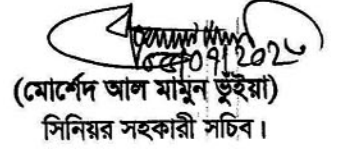 (মোর্শেদ আল মামুন ভুঁইয়া)
সিনিয়র সহকারী সচিব।